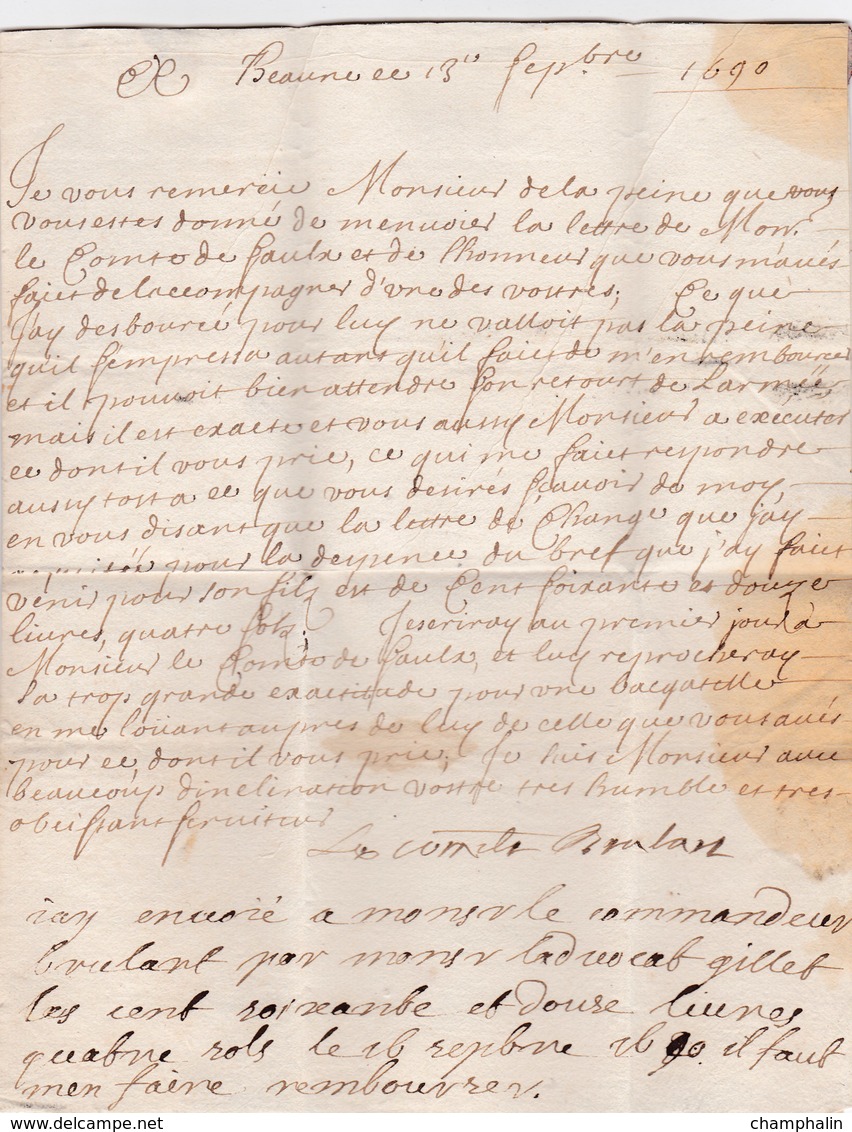 A Beaune ce 13e sepbre 1690
Je vous remercie Monsieur de la peine que vous
vous estes donné de menuoier la lettre de Monr
le Comte de Saulx et de lhonneur que vous maués
faict de laccompagner d'vne des vostres; Ce que
j'ay desbourcé pour luy ne valloit pas la peine
qu'il sempressa autant qu'il faict de m'en rembourcer
et il pouuoit bien attendre son retourt de Larmée
mais il est exacte et vous aussy Monsieur a executer
ce dont il vous prie, ce qui me faict respondre
aussy tost a ce que vous desirés sçauoir de moy
en vous disant que la lettre de Change que j'ay
pour la despence du bref que j'ay faict
venir pour son filz est de Cent soixante et douze
liures, quatre solz; Jescriray au premier jour à
Monsieur le Comte de Saulx, et luy reprocheray
sa trop grande exactitude pour vne bagatelle
en me loüant aupres de luy de celle que vous aués
pour ce dont il vous prie; Je suis Monsieur auec
beaucoup dinclination vostre tres humble et tres
obeissant seruiteur
Le comdr Brulart
iay enuoié a monsr le commandeur
brulart par monsr laduocat gillet
les cent soixante et douse liures
quatre sols le 16 sepbre 1690. il faut
men faire rembourser.
champhalin